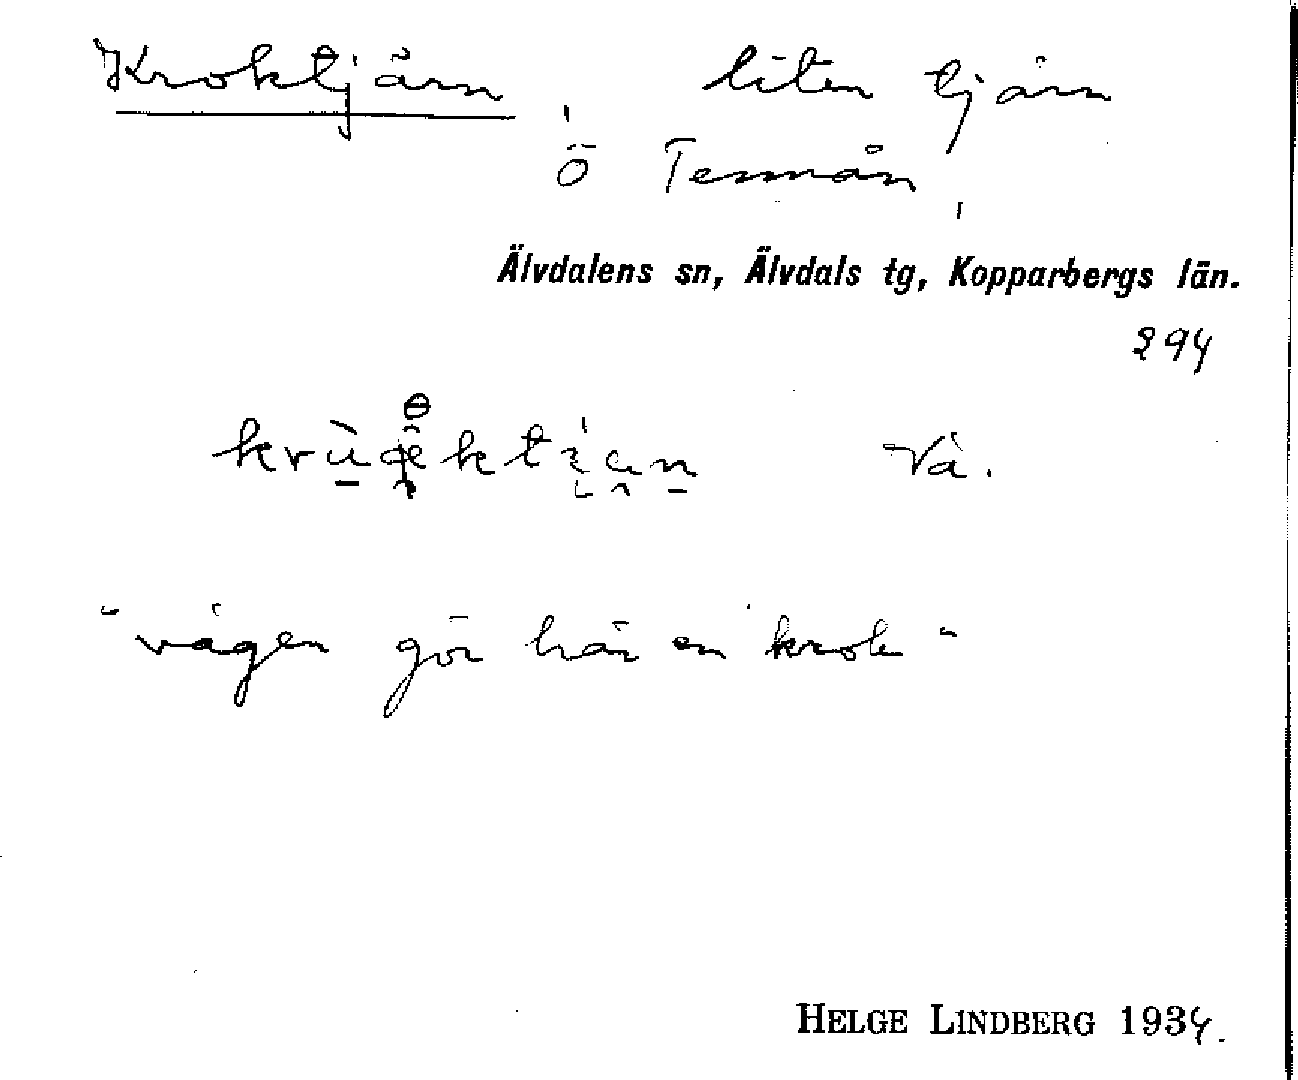 Kroktjärn, liten tjärn
ö Tennån,
Älvdalens sn, Älvdals tg, Kopparbergs län.
294
Vå.
"vägen gör här en krok"
HELGE LINDBERG 1934.